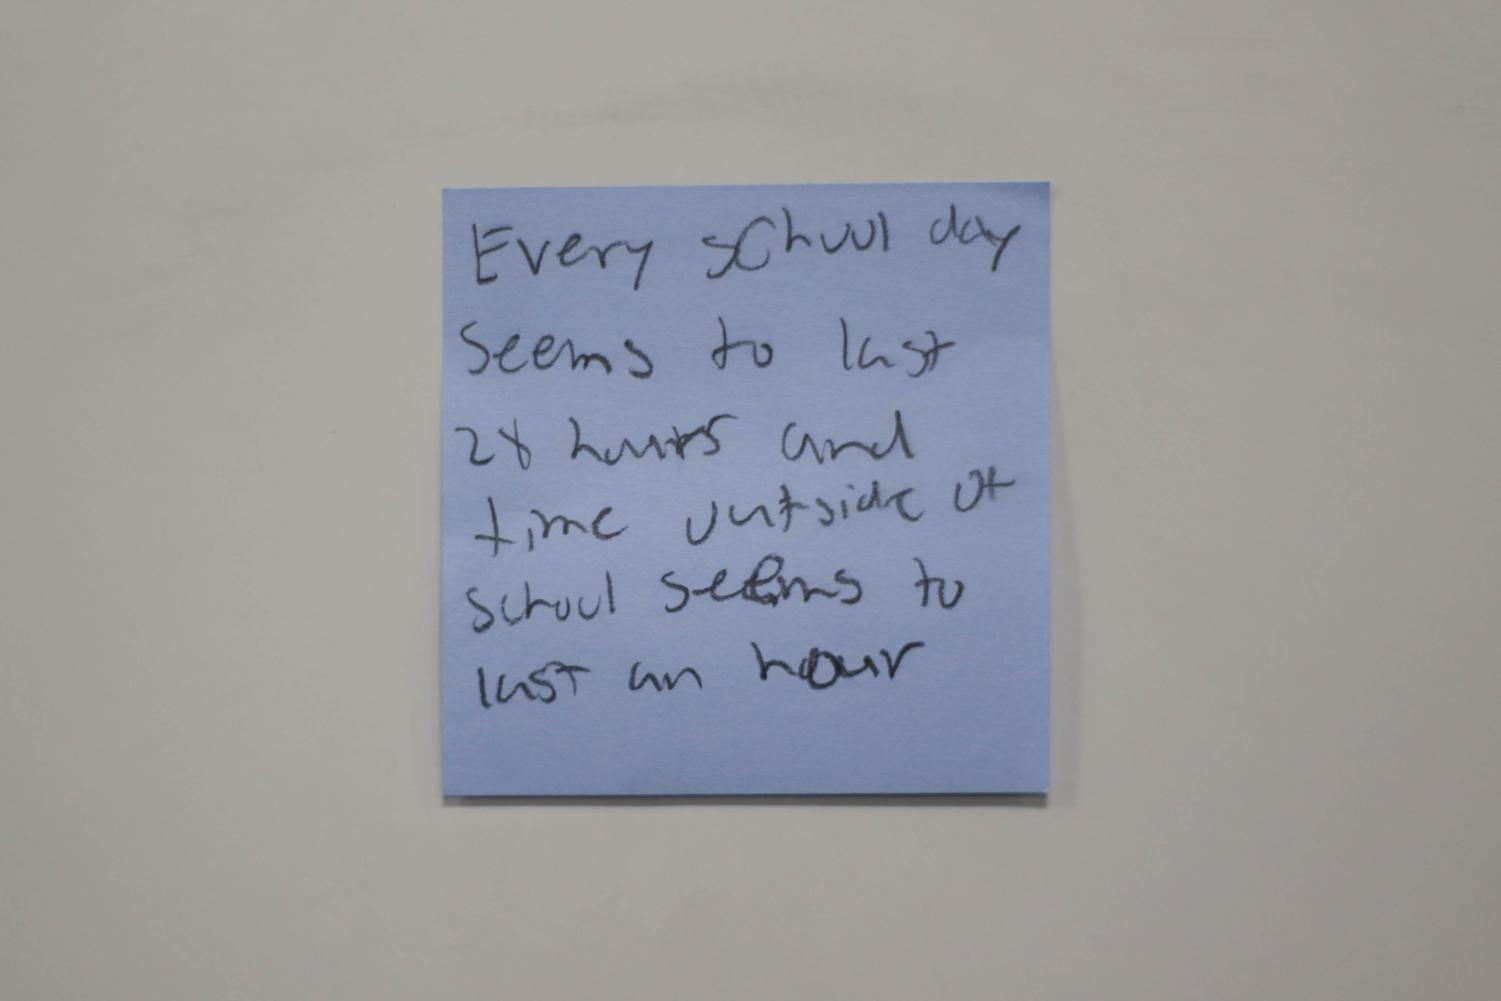 Every school day
seems to last
28 hours and
time outside of
school seems to
last an hour